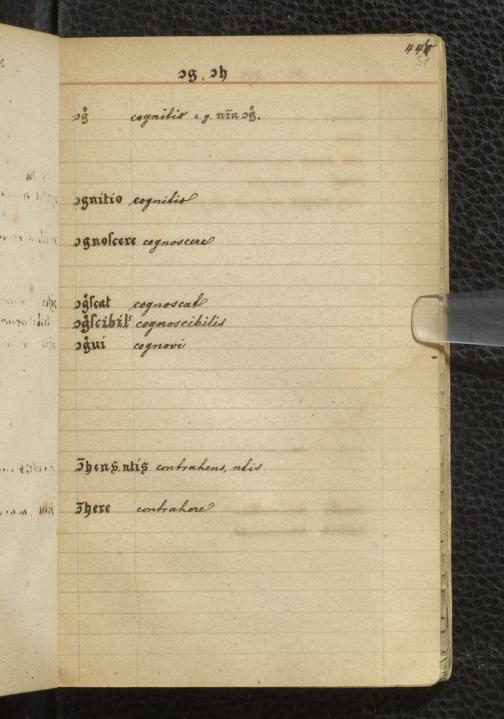 ꜿg, ꜿh
ꜿg̊ cognitio e.g. ꜿg̊.
ꜿgnitio cognitio
ꜿgnoſcere cognoscere
ꜿg̊ſcat cognoscat
ꜿg̊ſcibil' cognoscibilis
ꜿg̊ui cognovi
ꜿ̄hens, ntis contrahens, ntis
ꜿ̄here contrahere